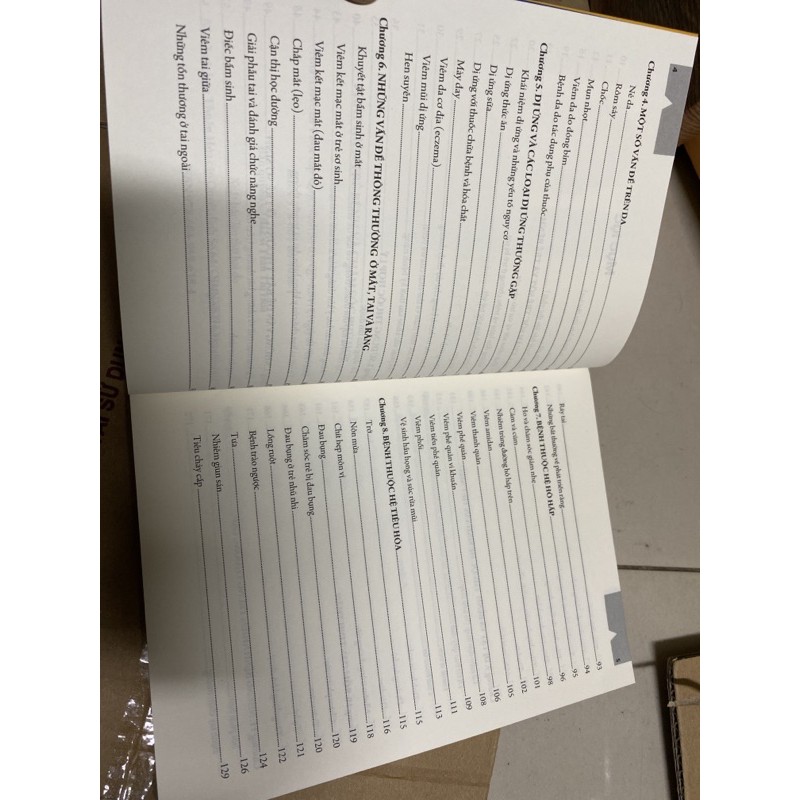 4
Chương 4. MỘT SỐ VẤN ĐỀ TRÊN DA
Nẻ da
Rôm sảy
Chốc
Mụn nhọt
Viêm da do đóng bỉm
Bệnh da do tác dụng phụ của thuốc
Chương 5. DỊ ỨNG VÀ CÁC LOẠI DỊ ỨNG THƯỜNG GẶP
Khái niệm dị ứng và những yếu tố nguy cơ
Dị ứng thức ăn
Dị ứng sữa
Dị ứng với thuốc chữa bệnh và hóa chất
Mày đay
Viêm da cơ địa (eczema)
Viêm mũi dị ứng
Hen suyễn
Chương 6. NHỮNG VẤN ĐỀ THÔNG THƯỜNG Ở MẮT, TAI VÀ RĂNG
Khuyết tật bẩm sinh ở mắt
Viêm kết mạc mắt ở trẻ sơ sinh
Viêm kết mạc mắt (đau mắt đỏ)
Chắp mắt (lẹo)
Cận thị học đường
Giải phẫu tai và đánh giá chức năng nghe
Điếc bẩm sinh
Viêm tai giữa
Những tổn thương ở tai ngoài
5
Ráy tai 93
Những bất thường về phát triển răng 94
Chương 7. BỆNH THUỘC HỆ HÔ HẤP 95
Ho và chăm sóc giảm nhẹ 96
Cảm và cúm 98
Nhiễm trùng đường hô hấp trên 101
Viêm amiđan 102
Viêm thanh quản 105
Viêm phế quản 106
Viêm phế quản vi khuẩn 108
Viêm tiểu phế quản 109
Viêm phổi 111
Vệ sinh hầu họng và súc rửa mũi 113
Chương 8. BỆNH THUỘC HỆ TIÊU HÓA 115
Trớ 115
Nôn mửa 116
Chứ hẹp môn vị 118
Đau bụng 119
Chăm sóc trẻ bị đau bụng 120
Đau bụng ở trẻ nhũ nhi 120
Lồng ruột 121
Bệnh trào ngược 122
Tưa 124
Nhiễm giun sán 126
Tiêu chảy cấp 129